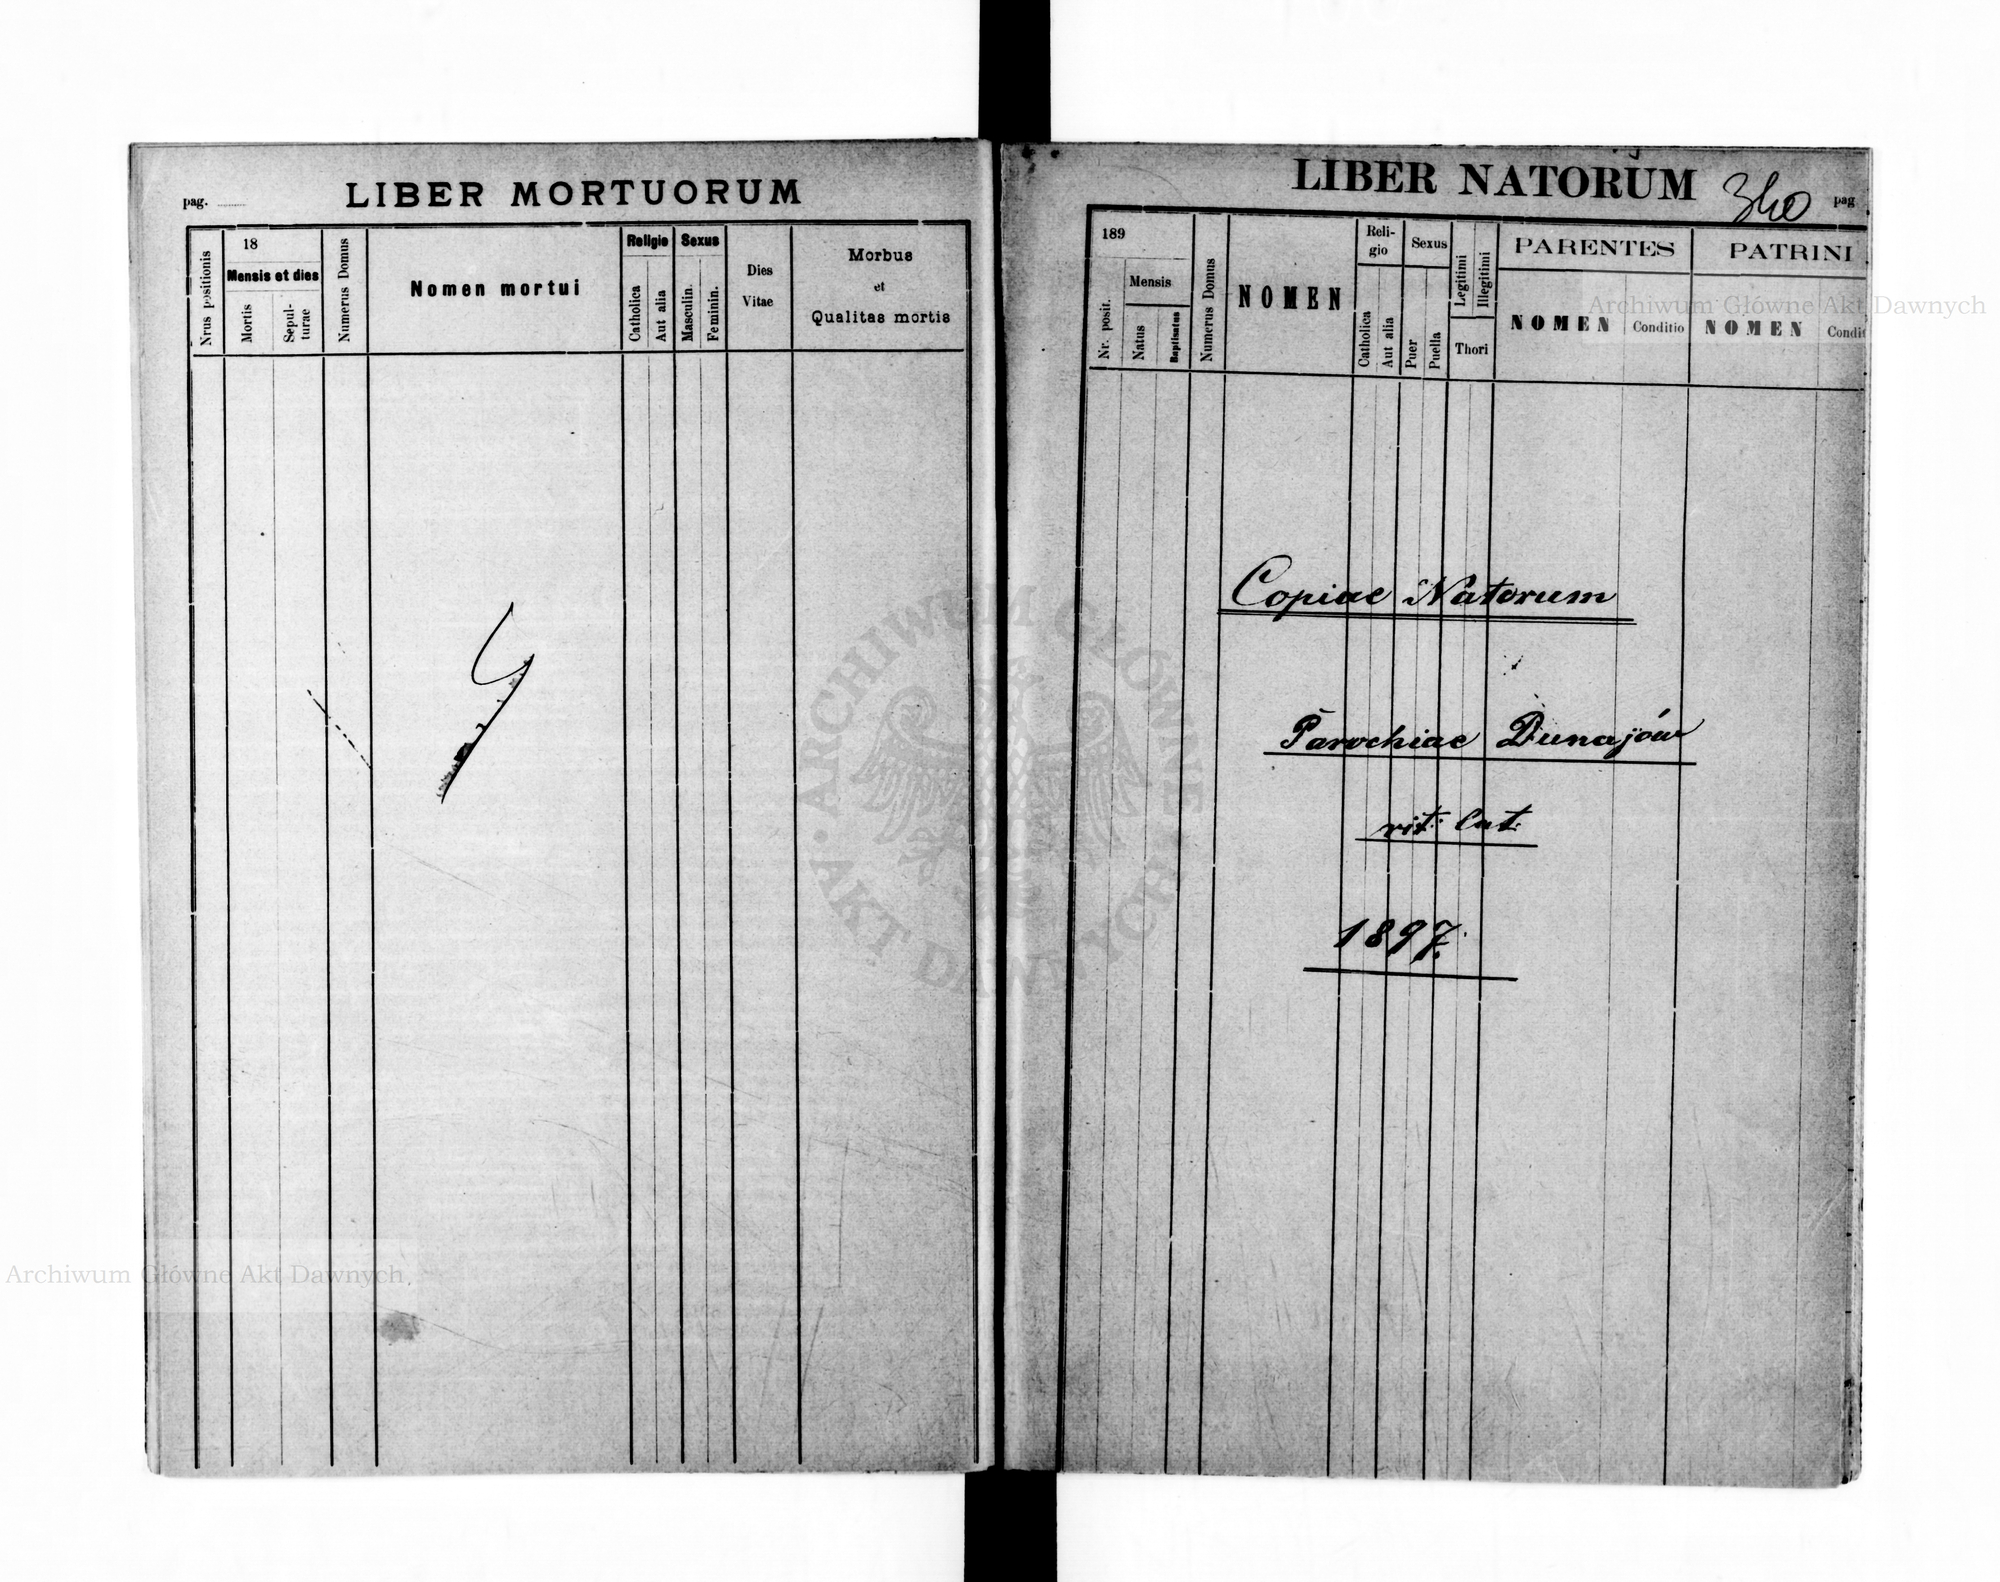 pag.
LIBER MORTUORUM
Nrus positionis
18
Mensis et dies
Mortis
Sepul-
turae
Numerus Domus
Nomen mortui
Religio
Catholica
Aut alia
Sexus
Masculin.
Feminin.
Dies
Vitae
Morbus
et
Qualitas mortis
LIBER NATORUM
340
pag
Nr. posit.
189
Mensis
Natus
Baptisatus
Numerus Domus
NOMEN
Reli-
gio
Catholica
Aut alia
Sexus
Puer
Puella
Legitimi
Illegitimi
Thori
PARENTES
NOMEN
Conditio
PATRINI
NOMEN
Condit
Copiae Natorum
Parochiae Dunajów
rit: lat:
1897.
ARCHIWUM GŁÓWNE
AKT DAWNYCH
Archiwum Główne Akt Dawnych
Archiwum Główne Akt Dawnych